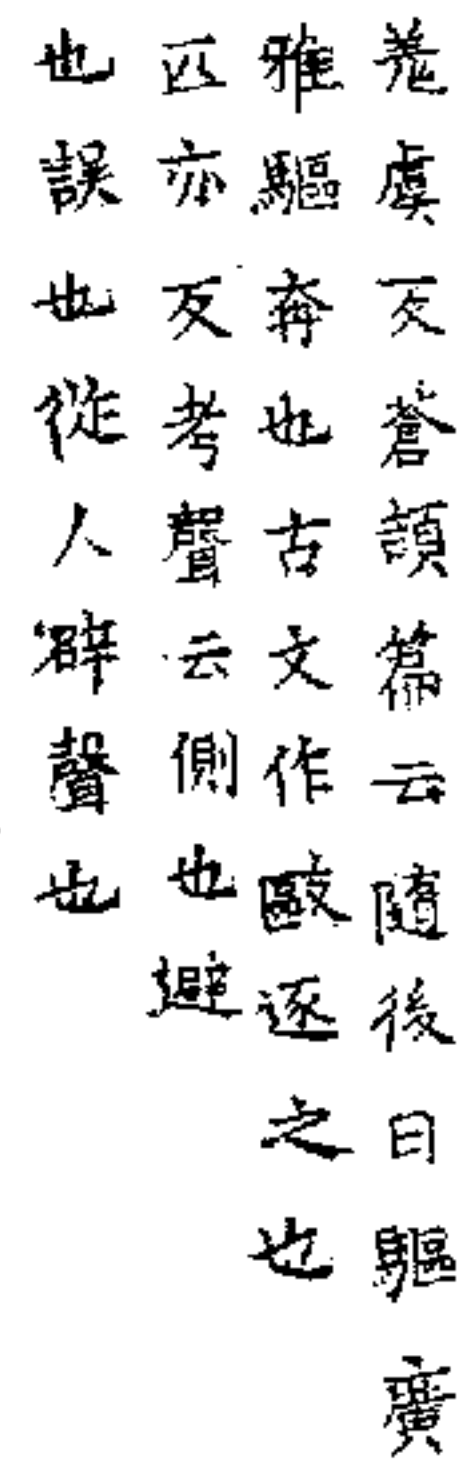 羗虞反蒼頡篇云隨後曰驅廣
雅驅奔也古文作敺逐之也
匹亦反考聲云側也避
也誤也從人辟聲也